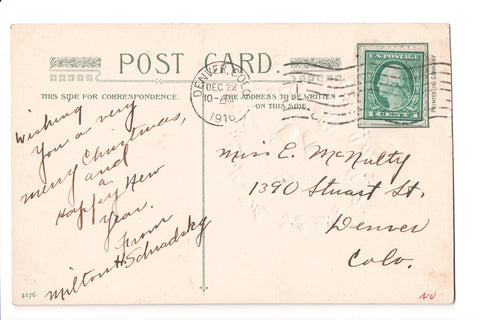 POST CARD
THIS SIDE FOR CORRESPONDENCE.
THE ADDRESS TO BE WRITTEN
ON THIS SIDE.
DENVER, COLO.
DEC 22
10-A
1916
U.S. POSTAGE
1 CENT 1
Wishing
you a very
merry Christmas,
and
a
Happy New
Year.
From
Milton H. Schradsky
Miss E. McNulty
1390 Stuart St.
Denver
Colo.
4176